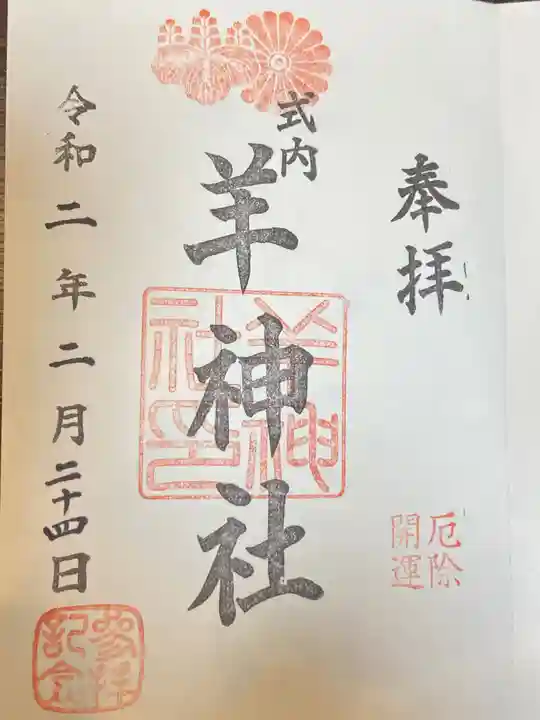 奉拝
厄除
開運
式内
羊神社
羊神社印
令和二年二月二十四日
参拝記念